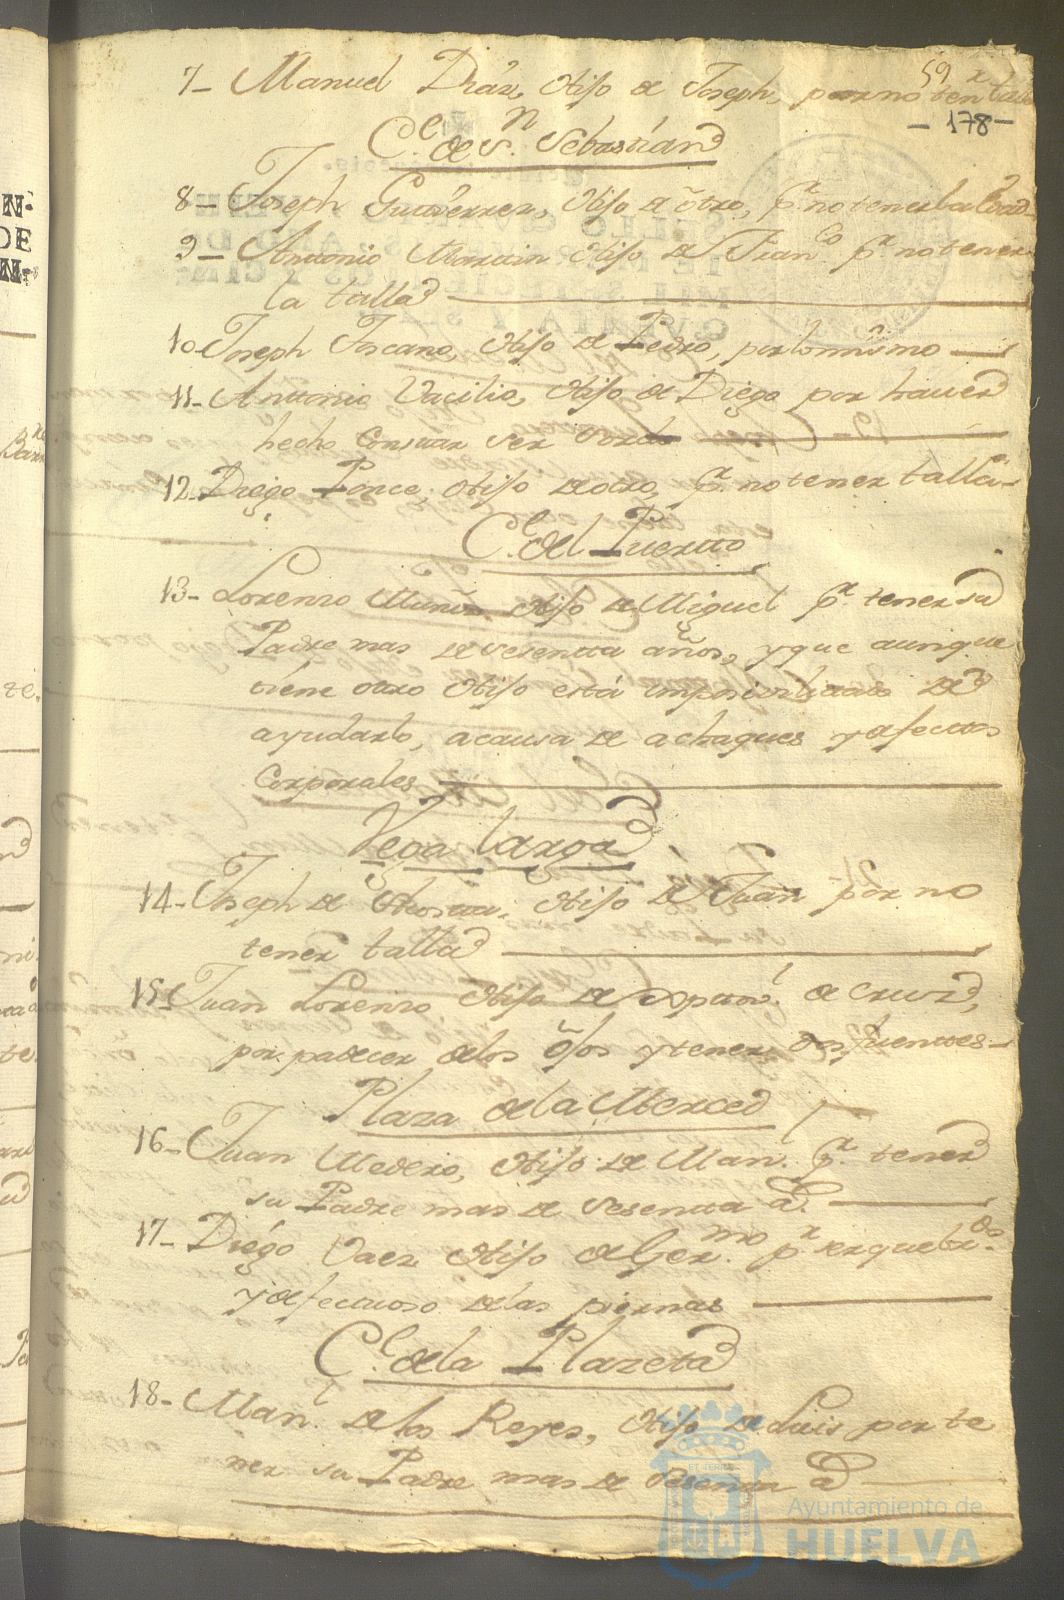 59
7- Manuel Diaz, Hijo de Joseph, por no ten talla
-178-
C.e de S.n Sebastian
8- Joseph Gutierrez, Hijo de otro, p.r no tener la edad
9- Antonio Martin Hijo de Fran.co p.r no tener
la talla
10- Joseph Toscano, Hijo de Pedro, por lo mismo
11- Antonio Vacilio, Hijo de Diego por haver
hecho constar ser sordo
12- Diego Ponce, Hijo de otro, p.r no tener talla
C.e del Puerto
13- Lorenzo Muñoz Hijo de Miguel p.r tener su
Padre mas de sesenta años, y que aunque
tiene otro Hijo está imposivilitado de
ayudarlo, a causa de achaques y defectos
Corporales
Vega larga
14- Joseph de Acosta, Hijo de Juan por no
tener talla
15- Juan Lorenzo Hijo de de Cruz,
por padecer de los ojos y tener dos fuentes
Plaza de la Merced
16- Juan Medero, Hijo de Man.l p.r tener
su Padre mas de sesenta a.s
17- Diego Vaez Hijo de Ger.mo p.r ser quebr.do
y defectuoso de las piernas
C.e de la Plazeta
18- Man.l de los Reyes, Hijo de Luis por te
ner su Padre mas de sesenta a.s
Ayuntamiento de
HUELVA